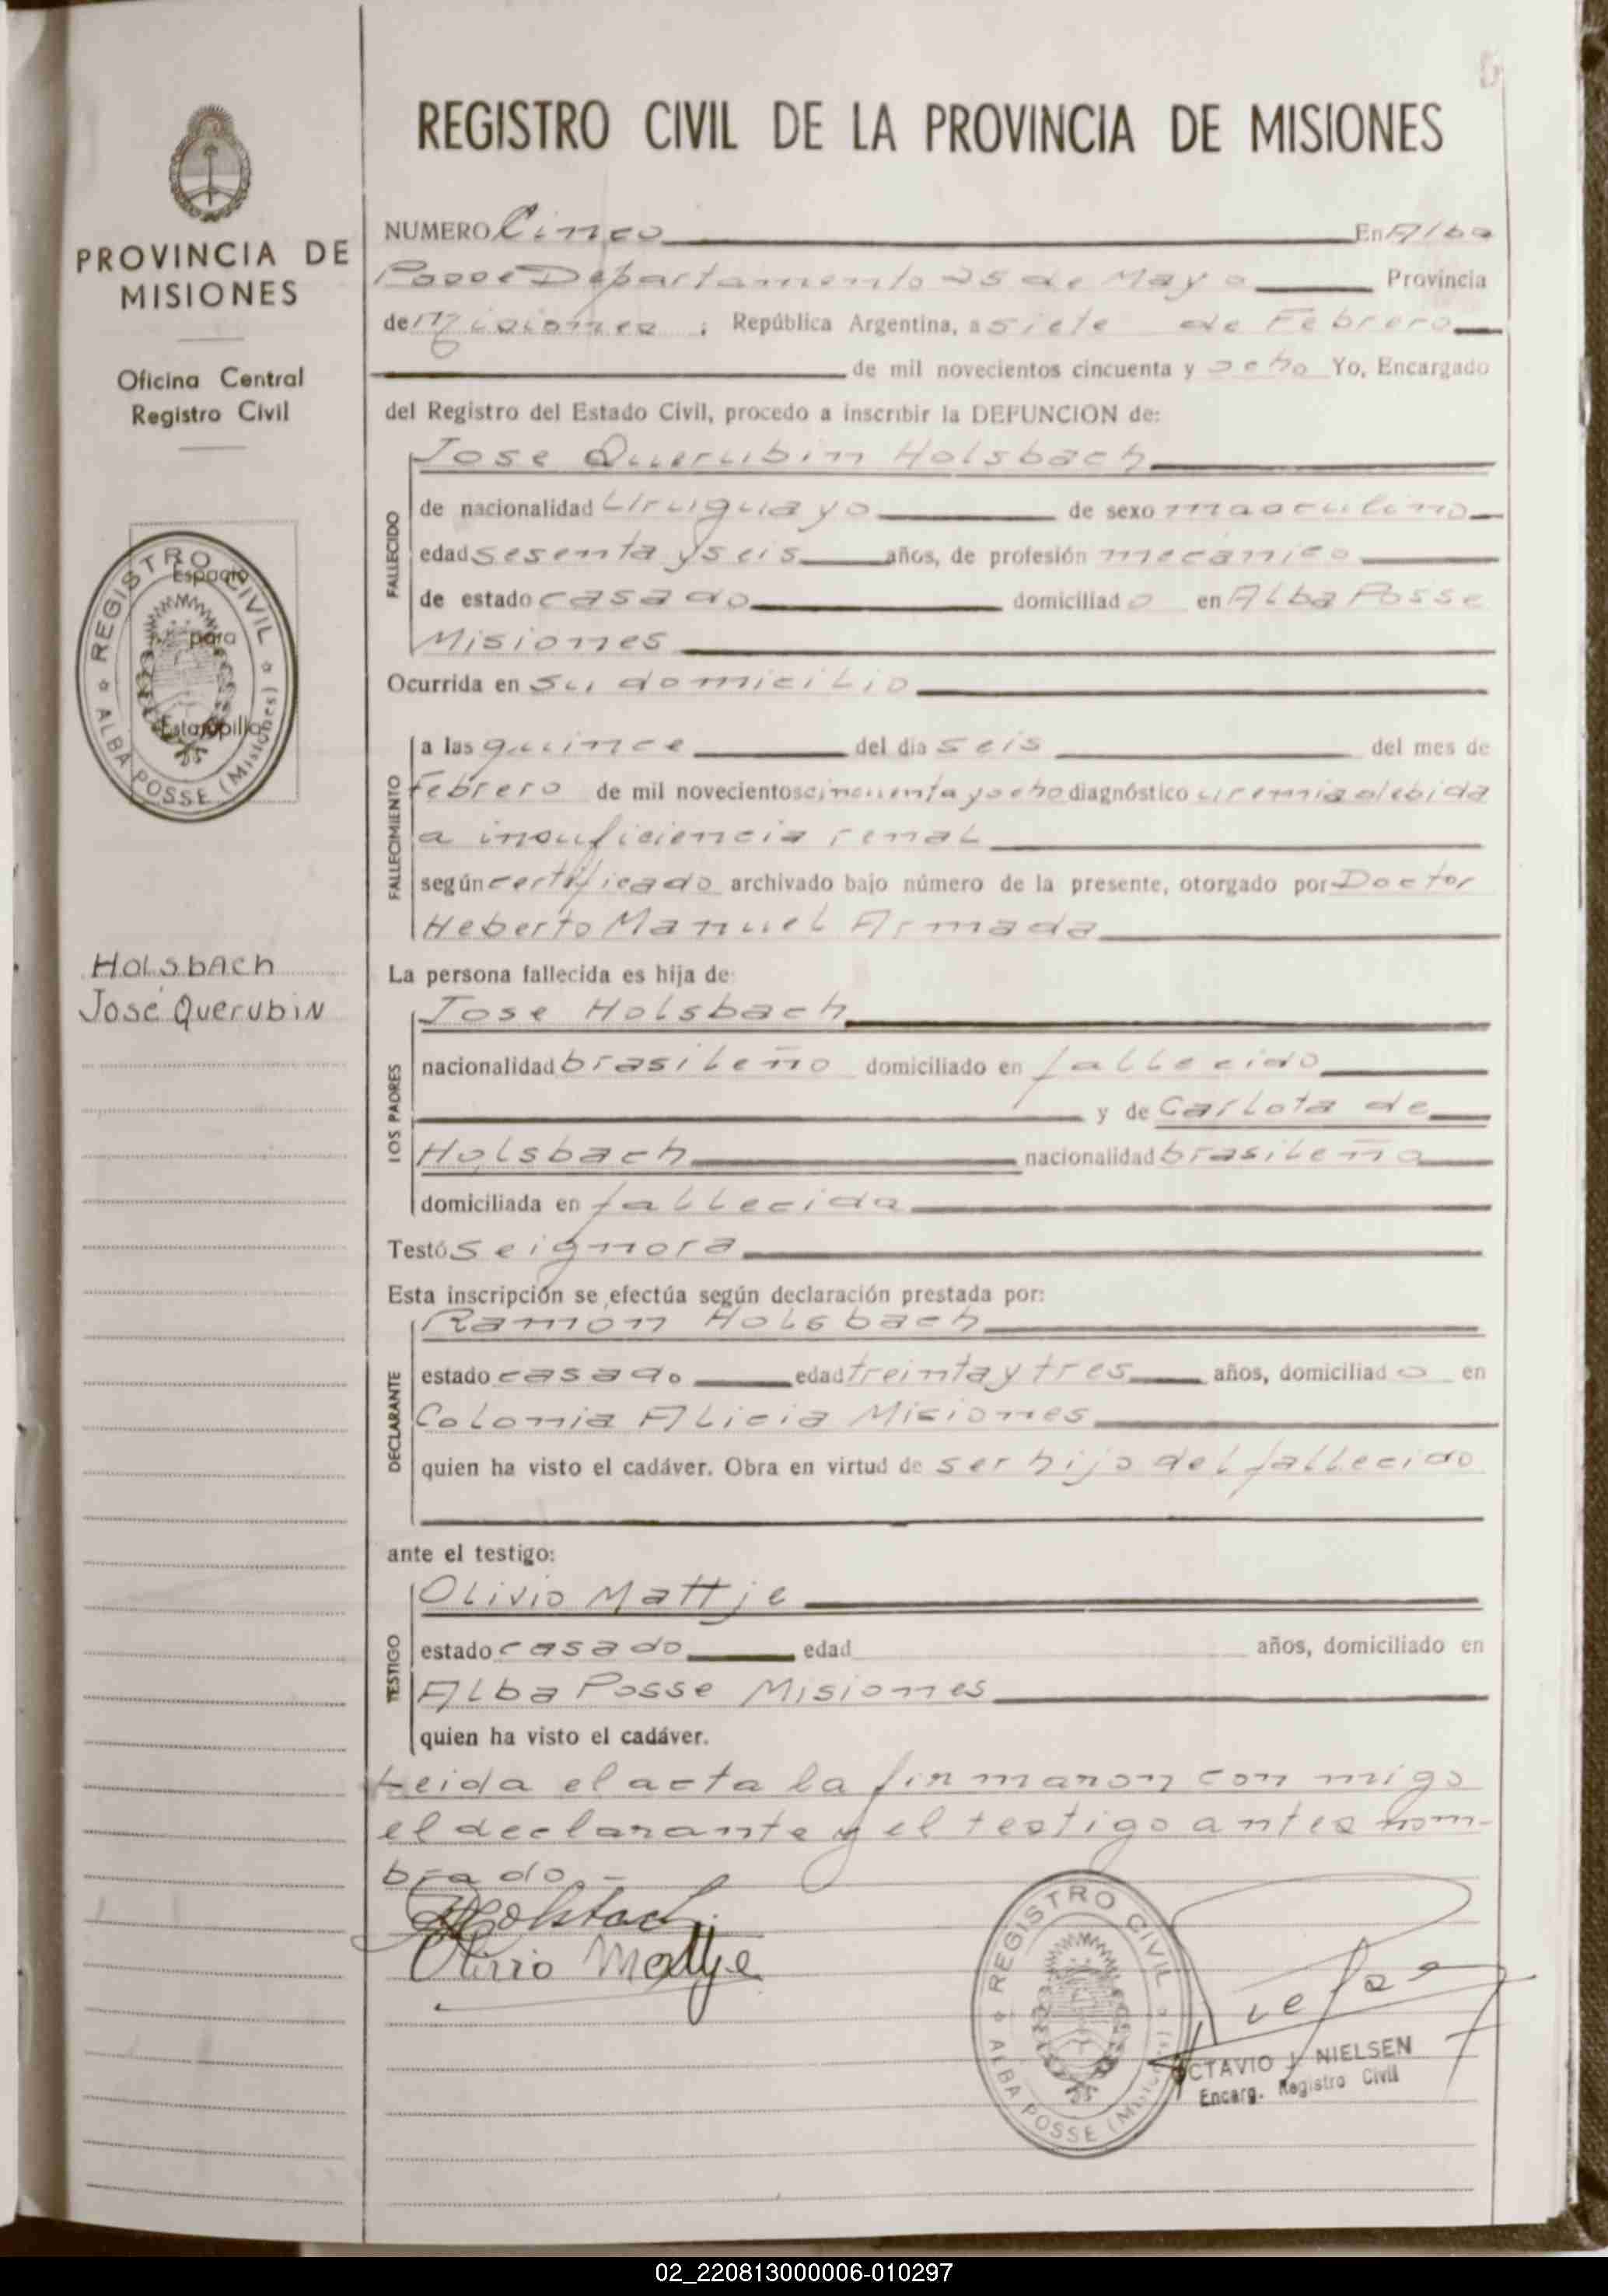 REGISTRO CIVIL DE LA PROVINCIA DE MISIONES
PROVINCIA DE
MISIONES
Oficina Central
Registro Civil
REGISTRO CIVIL
ALBA POSSE (Misiones)
Espacio
para
Estampilla
Holsbach
José Querubin
NUMERO Cinco En Alba
Posse Departamento 25 de Mayo Provincia
de Misiones ; República Argentina, a siete de Febrero
de mil novecientos cincuenta y ocho Yo, Encargado
del Registro del Estado Civil, procedo a inscribir la DEFUNCION de:
FALLECIDO
Jose Querubin Holsbach
de nacionalidad Uruguayo de sexo masculino
edad sesenta y seis años, de profesión mecánico
de estado casado domiciliado en Alba Posse
Misiones
Ocurrida en su domicilio
FALLECIMIENTO
a las quince del día seis del mes de
Febrero de mil novecientos cincuenta y ocho diagnóstico uremia debida
a insuficiencia renal
según certificado archivado bajo número de la presente, otorgado por Doctor
Heberto Manuel Armada
La persona fallecida es hija de:
LOS PADRES
Jose Holsbach
nacionalidad brasileño domiciliado en fallecido
y de Carlota de
Holsbach nacionalidad brasileña
domiciliada en fallecida
Testó se ignora
Esta inscripción se efectúa según declaración prestada por:
DECLARANTE
Ramon Holsbach
estado casado edad treinta y tres años, domiciliado en
Colonia Alicia Misiones
quien ha visto el cadáver. Obra en virtud de ser hijo del fallecido
ante el testigo:
TESTIGO
Olivio Mattje
estado casado edad años, domiciliado en
Alba Posse Misiones
quien ha visto el cadáver.
Leida el acta la firmaron con migo
el declarante y el testigo antes nom-
brado.-
Olivio Mattje
REGISTRO CIVIL
ALBA POSSE (Misiones)
OCTAVIO J. NIELSEN
Encarg. Registro Civil
02_220813000006-010297